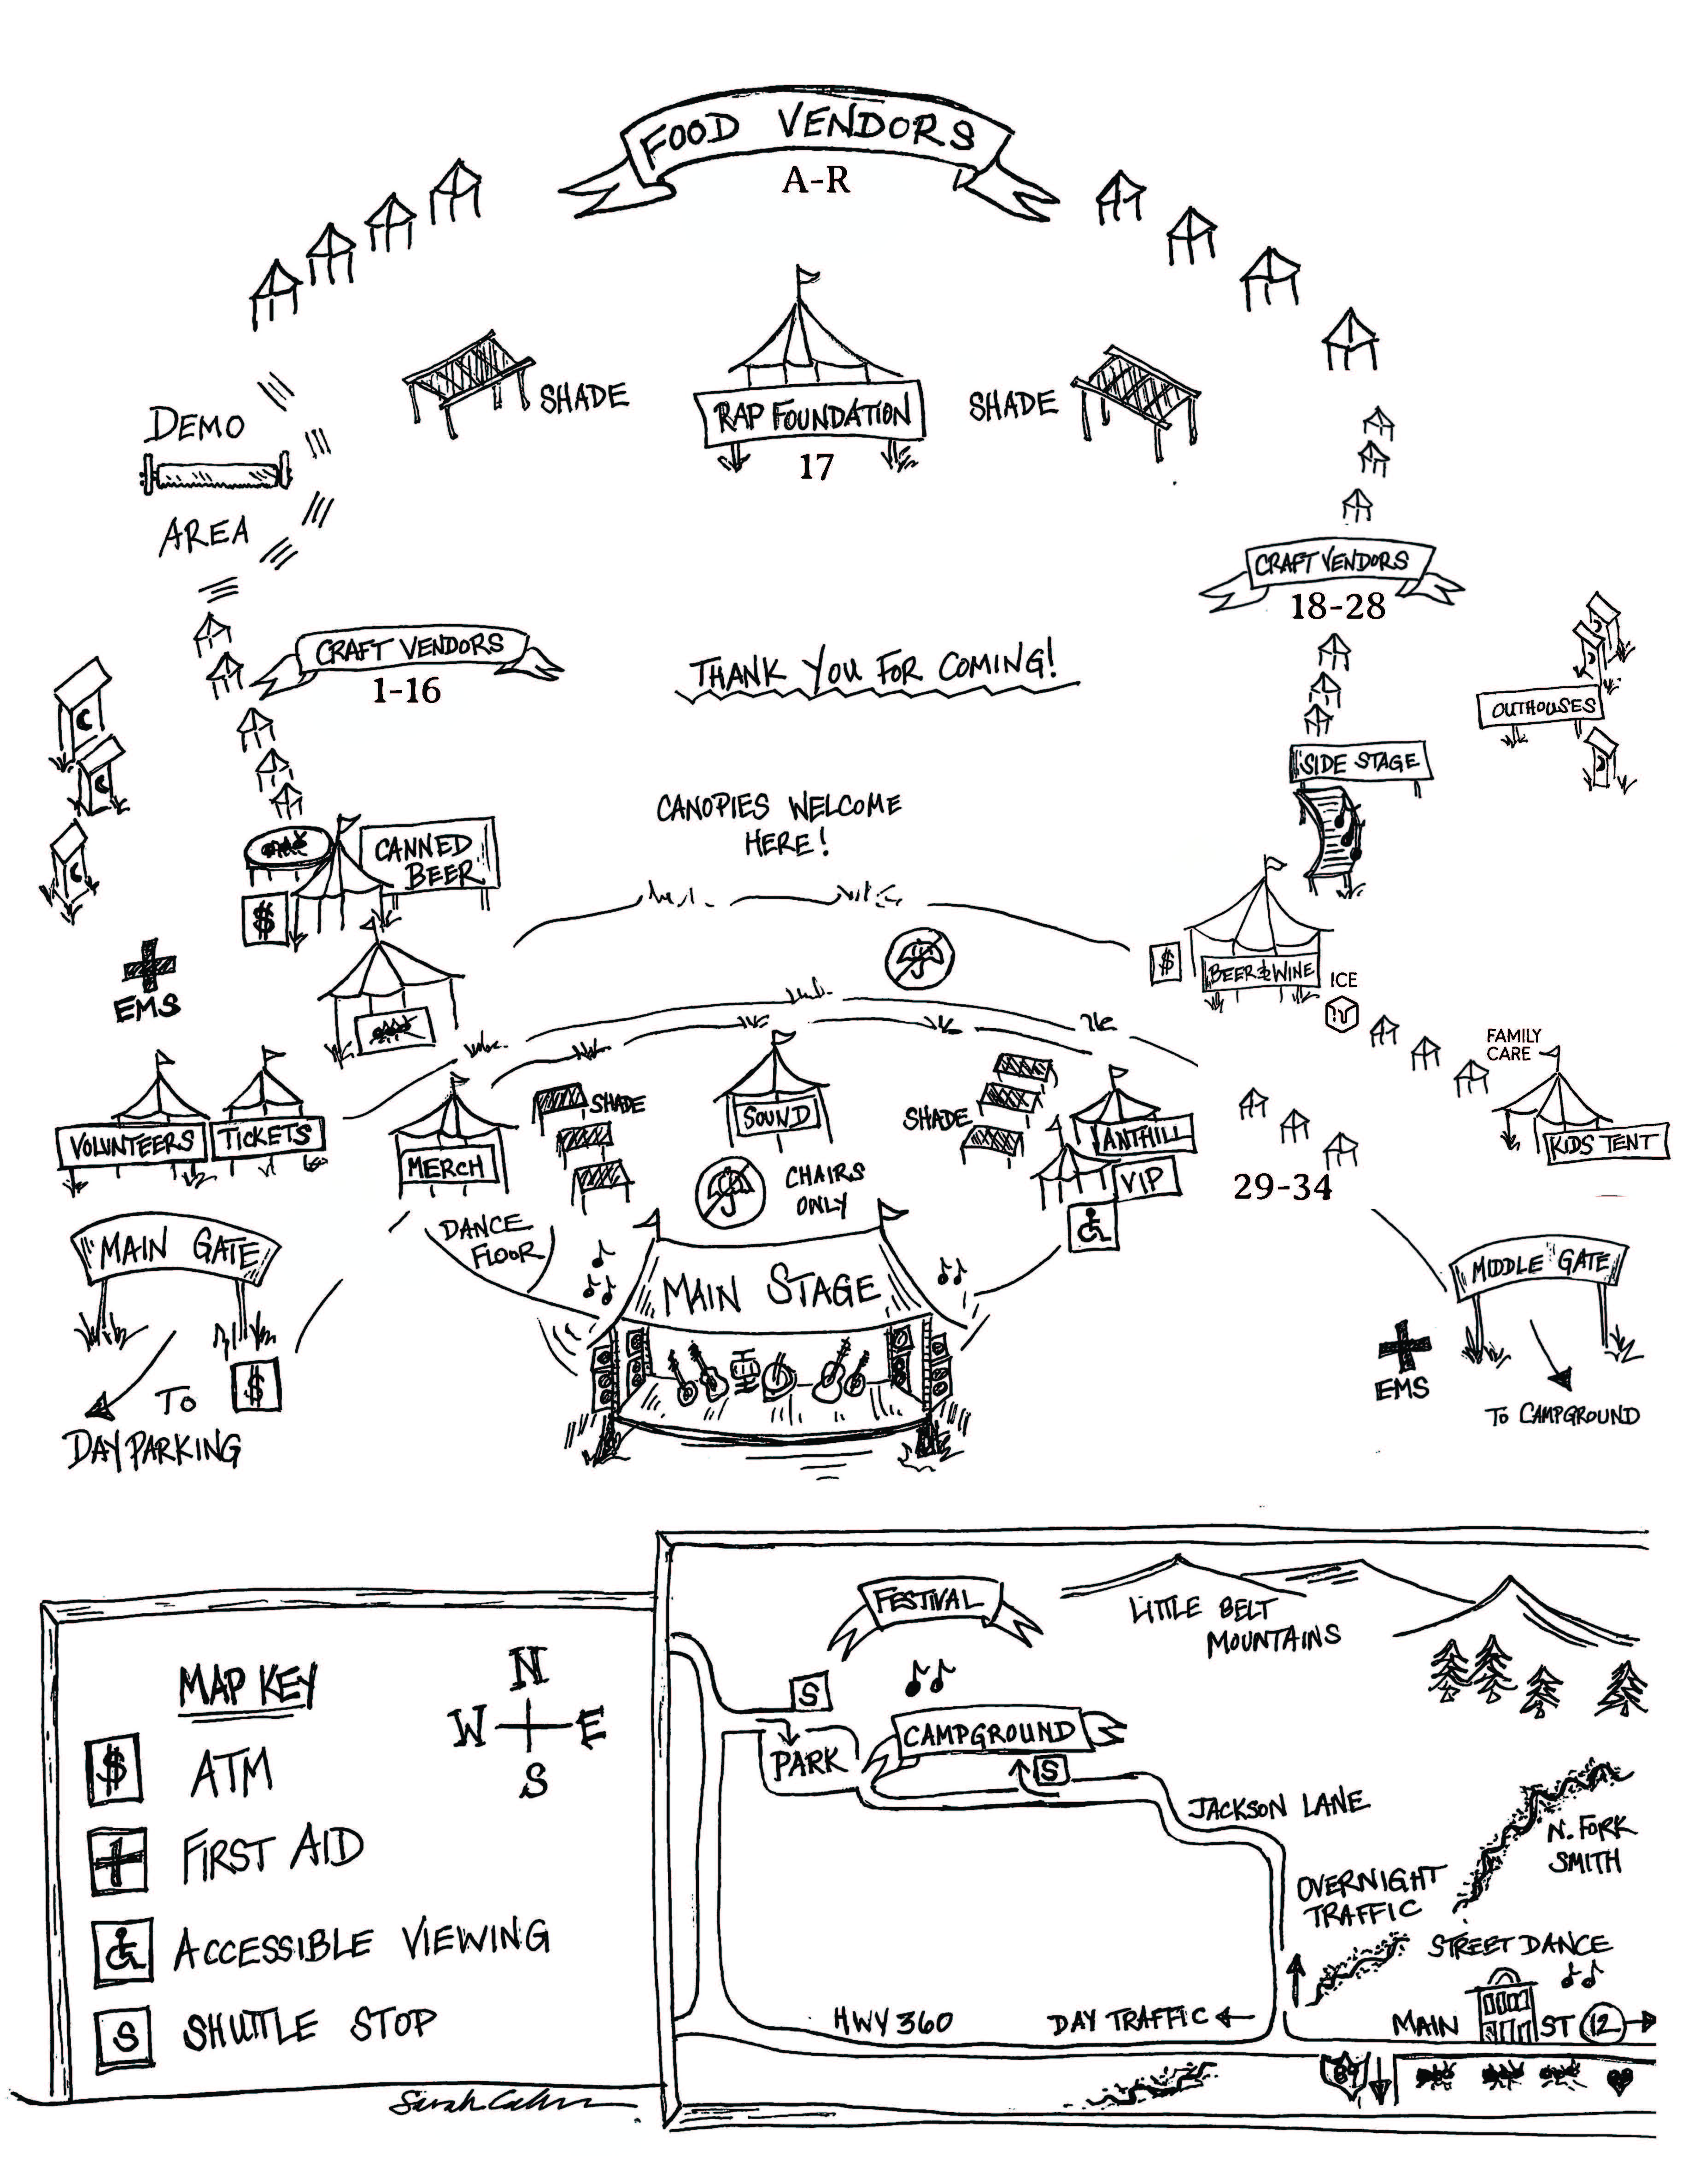 FOOD VENDORS
A-R
SHADE
RAP FOUNDATION
17
SHADE
DEMO
AREA
CRAFT VENDORS
18-28
CRAFT VENDORS
1-16
THANK YOU FOR COMING!
OUTHOUSES
SIDE STAGE
CANOPIES WELCOME
HERE!
CANNED
BEER
$
$
BEER & WINE
ICE
EMS
FAMILY
CARE
VOLUNTEERS
TICKETS
MERCH
SHADE
SOUND
SHADE
ANTHILL
VIP
KIDS TENT
CHAIRS
ONLY
29-34
DANCE
FLOOR
MAIN GATE
MAIN STAGE
MIDDLE GATE
$
TO
DAY PARKING
EMS
TO CAMPGROUND
MAP KEY
N
W E
S
$ ATM
FIRST AID
ACCESSIBLE VIEWING
S SHUTTLE STOP
FESTIVAL
LITTLE BELT
MOUNTAINS
S
CAMPGROUND
PARK
S
JACKSON LANE
N. FORK
SMITH
OVERNIGHT
TRAFFIC
STREET DANCE
HWY 360
DAY TRAFFIC
MAIN ST 12
89